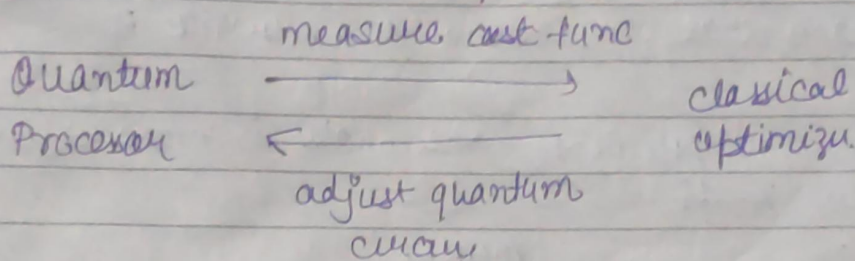 measure cost func
Quantum → classical
Processor ← optimizer
adjust quantum
circuit